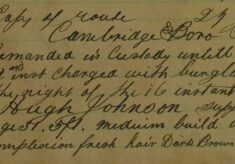 Copy of route
Cambridge & Boro
remanded in Custody untill
2nd inst Charged with burgla
the night of the 16 instant
Hugh Johnson Supp
age 31, 5ft. medium build
complexion fresh hair Dark Brown